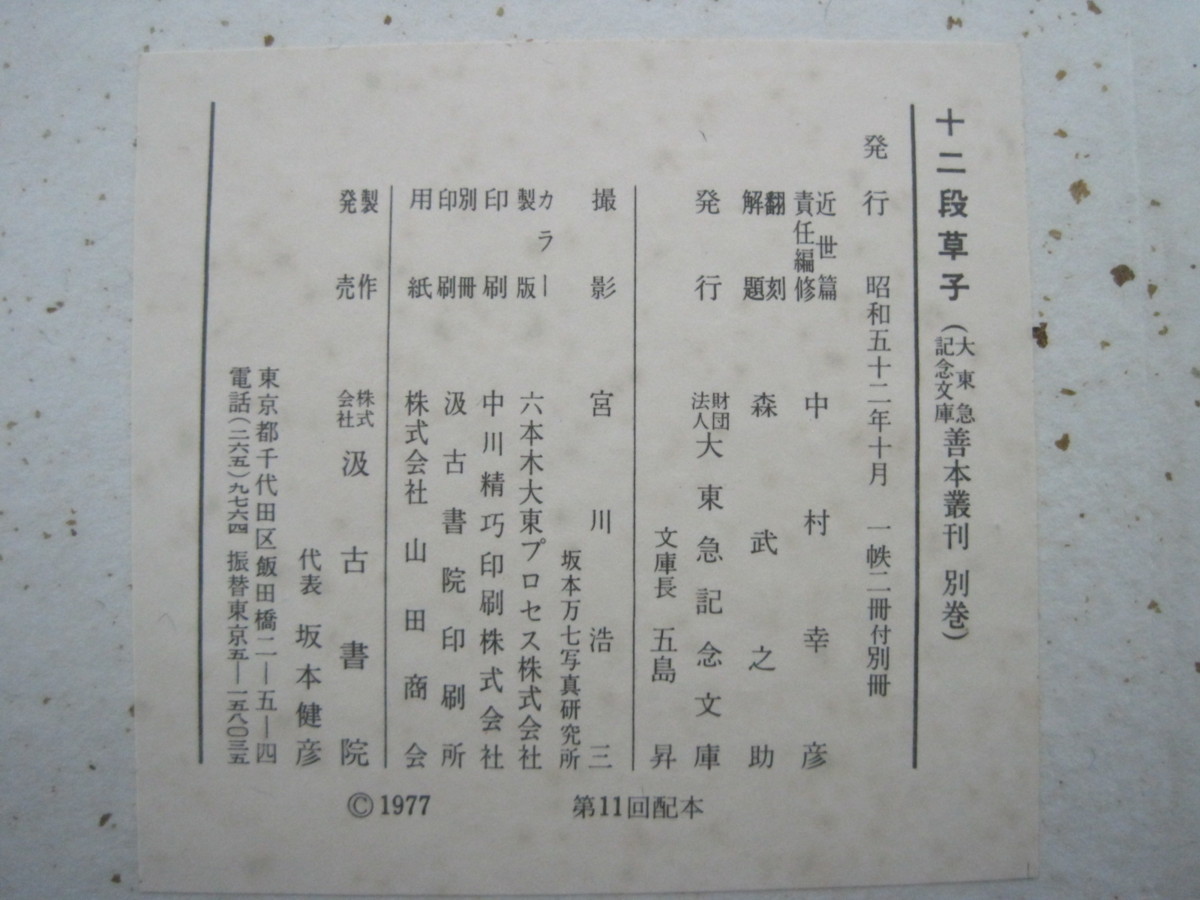 十二段草子（大東急記念文庫善本叢刊 別巻）
発行 昭和五十二年十月 一帙二冊付別冊
近世篇責任編修 中村幸彦
翻刻解題 森武之助
発行 財団法人大東急記念文庫
文庫長 五島昇
撮影 宮川浩三
坂本万七写真研究所
カラー製版 六本木大東プロセス株式会社
印刷 中川精巧印刷株式会社
別冊印刷 汲古書院印刷所
用紙 株式会社山田商会
製作発売 株式会社汲古書院
代表 坂本健彦
東京都千代田区飯田橋二―五―四
電話（二六五）九七六四 振替東京五―一五八〇三五
第11回配本
©1977